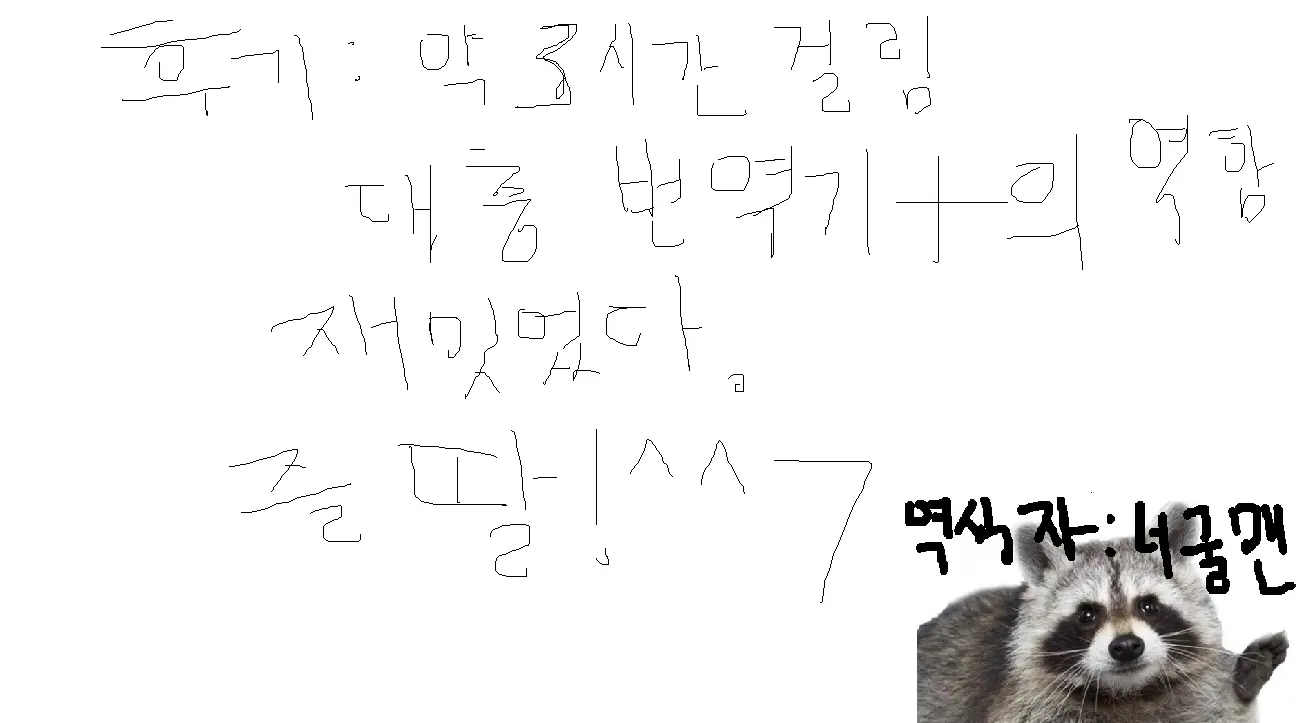 후기: 약 3시간 걸림
대충 번역기+의역함
재밌었다.
즐딸!^^7
역식자:너굴맨